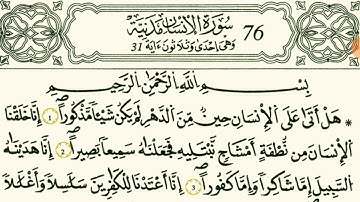 سُورَةُ الْإِنسَانِ مَدَنِيَّة 76
وَهِيَ إِحْدَى وَثَلَاثُونَ ءَايَةً 31
بِسْمِ اللَّهِ الرَّحْمَٰنِ الرَّحِيمِ
* هَلْ أَتَىٰ عَلَى الْإِنسَانِ حِينٌ مِّنَ الدَّهْرِ لَمْ يَكُن شَيْئًا مَّذْكُورًا 1 إِنَّا خَلَقْنَا
الْإِنسَانَ مِن نُّطْفَةٍ أَمْشَاجٍ نَّبْتَلِيهِ فَجَعَلْنَاهُ سَمِيعًا بَصِيرًا 2 إِنَّا هَدَيْنَاهُ
السَّبِيلَ إِمَّا شَاكِرًا وَإِمَّا كَفُورًا 3 إِنَّا أَعْتَدْنَا لِلْكَافِرِينَ سَلَاسِلًا وَأَغْلَالًا